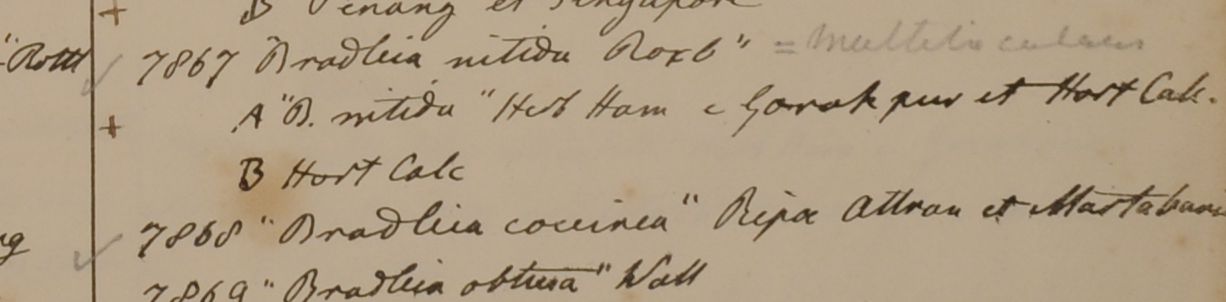 B Penang et Singapore
"Rottl
7867 "Bradleia nitida Roxb" = multilocularis
A "B. nitida" Herb Ham e Gorakpur et Hort Calc.
B Hort Calc
7868 "Bradleia coccinea" Ripa Attran et Martabania
7869 "Bradleia obtusa" Wall